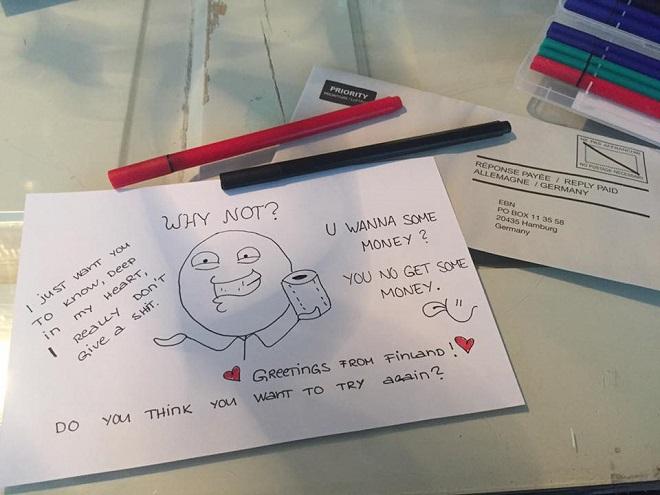 PRIORITY
NE PAS AFFRANCHIR
NO POSTAGE NECESSARY
RÉPONSE PAYÉE / REPLY PAID
ALLEMAGNE / GERMANY
EBN
PO BOX 11 35 58
20435 Hamburg
Germany
WHY NOT?
I JUST WANT YOU
TO KNOW, DEEP
IN MY HEART,
I REALLY DON'T
GIVE A SHIT.
U WANNA SOME
MONEY?
YOU NO GET SOME
MONEY.
GREETINGS FROM FINLAND!
DO YOU THINK YOU WANT TO TRY again?